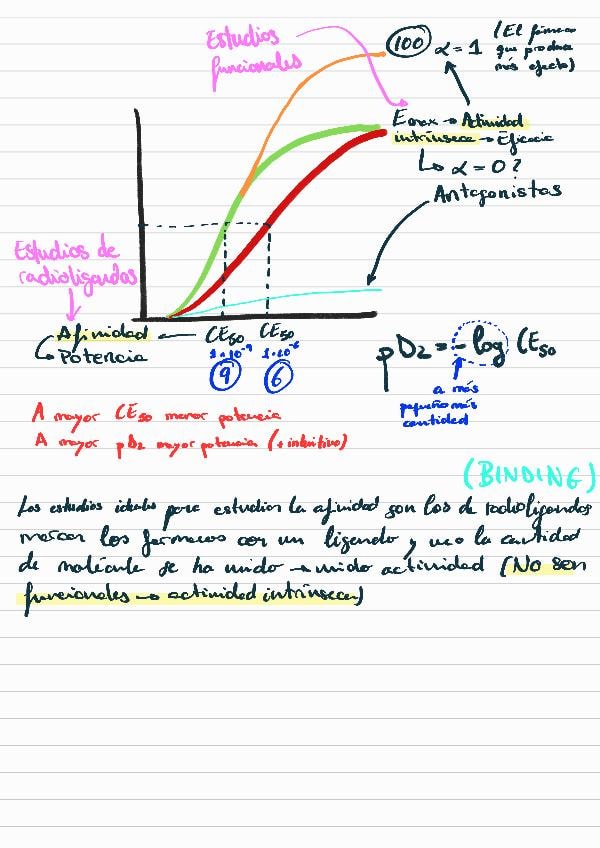 Estudios
funcionales
100 α = 1
(El fármaco
que produce
más efecto)
Emax → Actividad
intrínseca → Eficacia
↳ α = 0?
Antagonistas
Estudios de
radioligandos
Afinidad ← CE50 CE50
Potencia 1·10⁻⁹ 1·10⁻⁶
9 6
pD2 = -log CE50
a más
pequeño más
cantidad
A mayor CE50 menor potencia
A mayor pD2 mayor potencia (+ intuitivo)
(BINDING)
Los estudios ideales para estudiar la afinidad son los de radioligandos
marcan los fármacos con un ligando y veo la cantidad
de molécula se ha unido → mido actividad (No son
funcionales → actividad intrínseca)